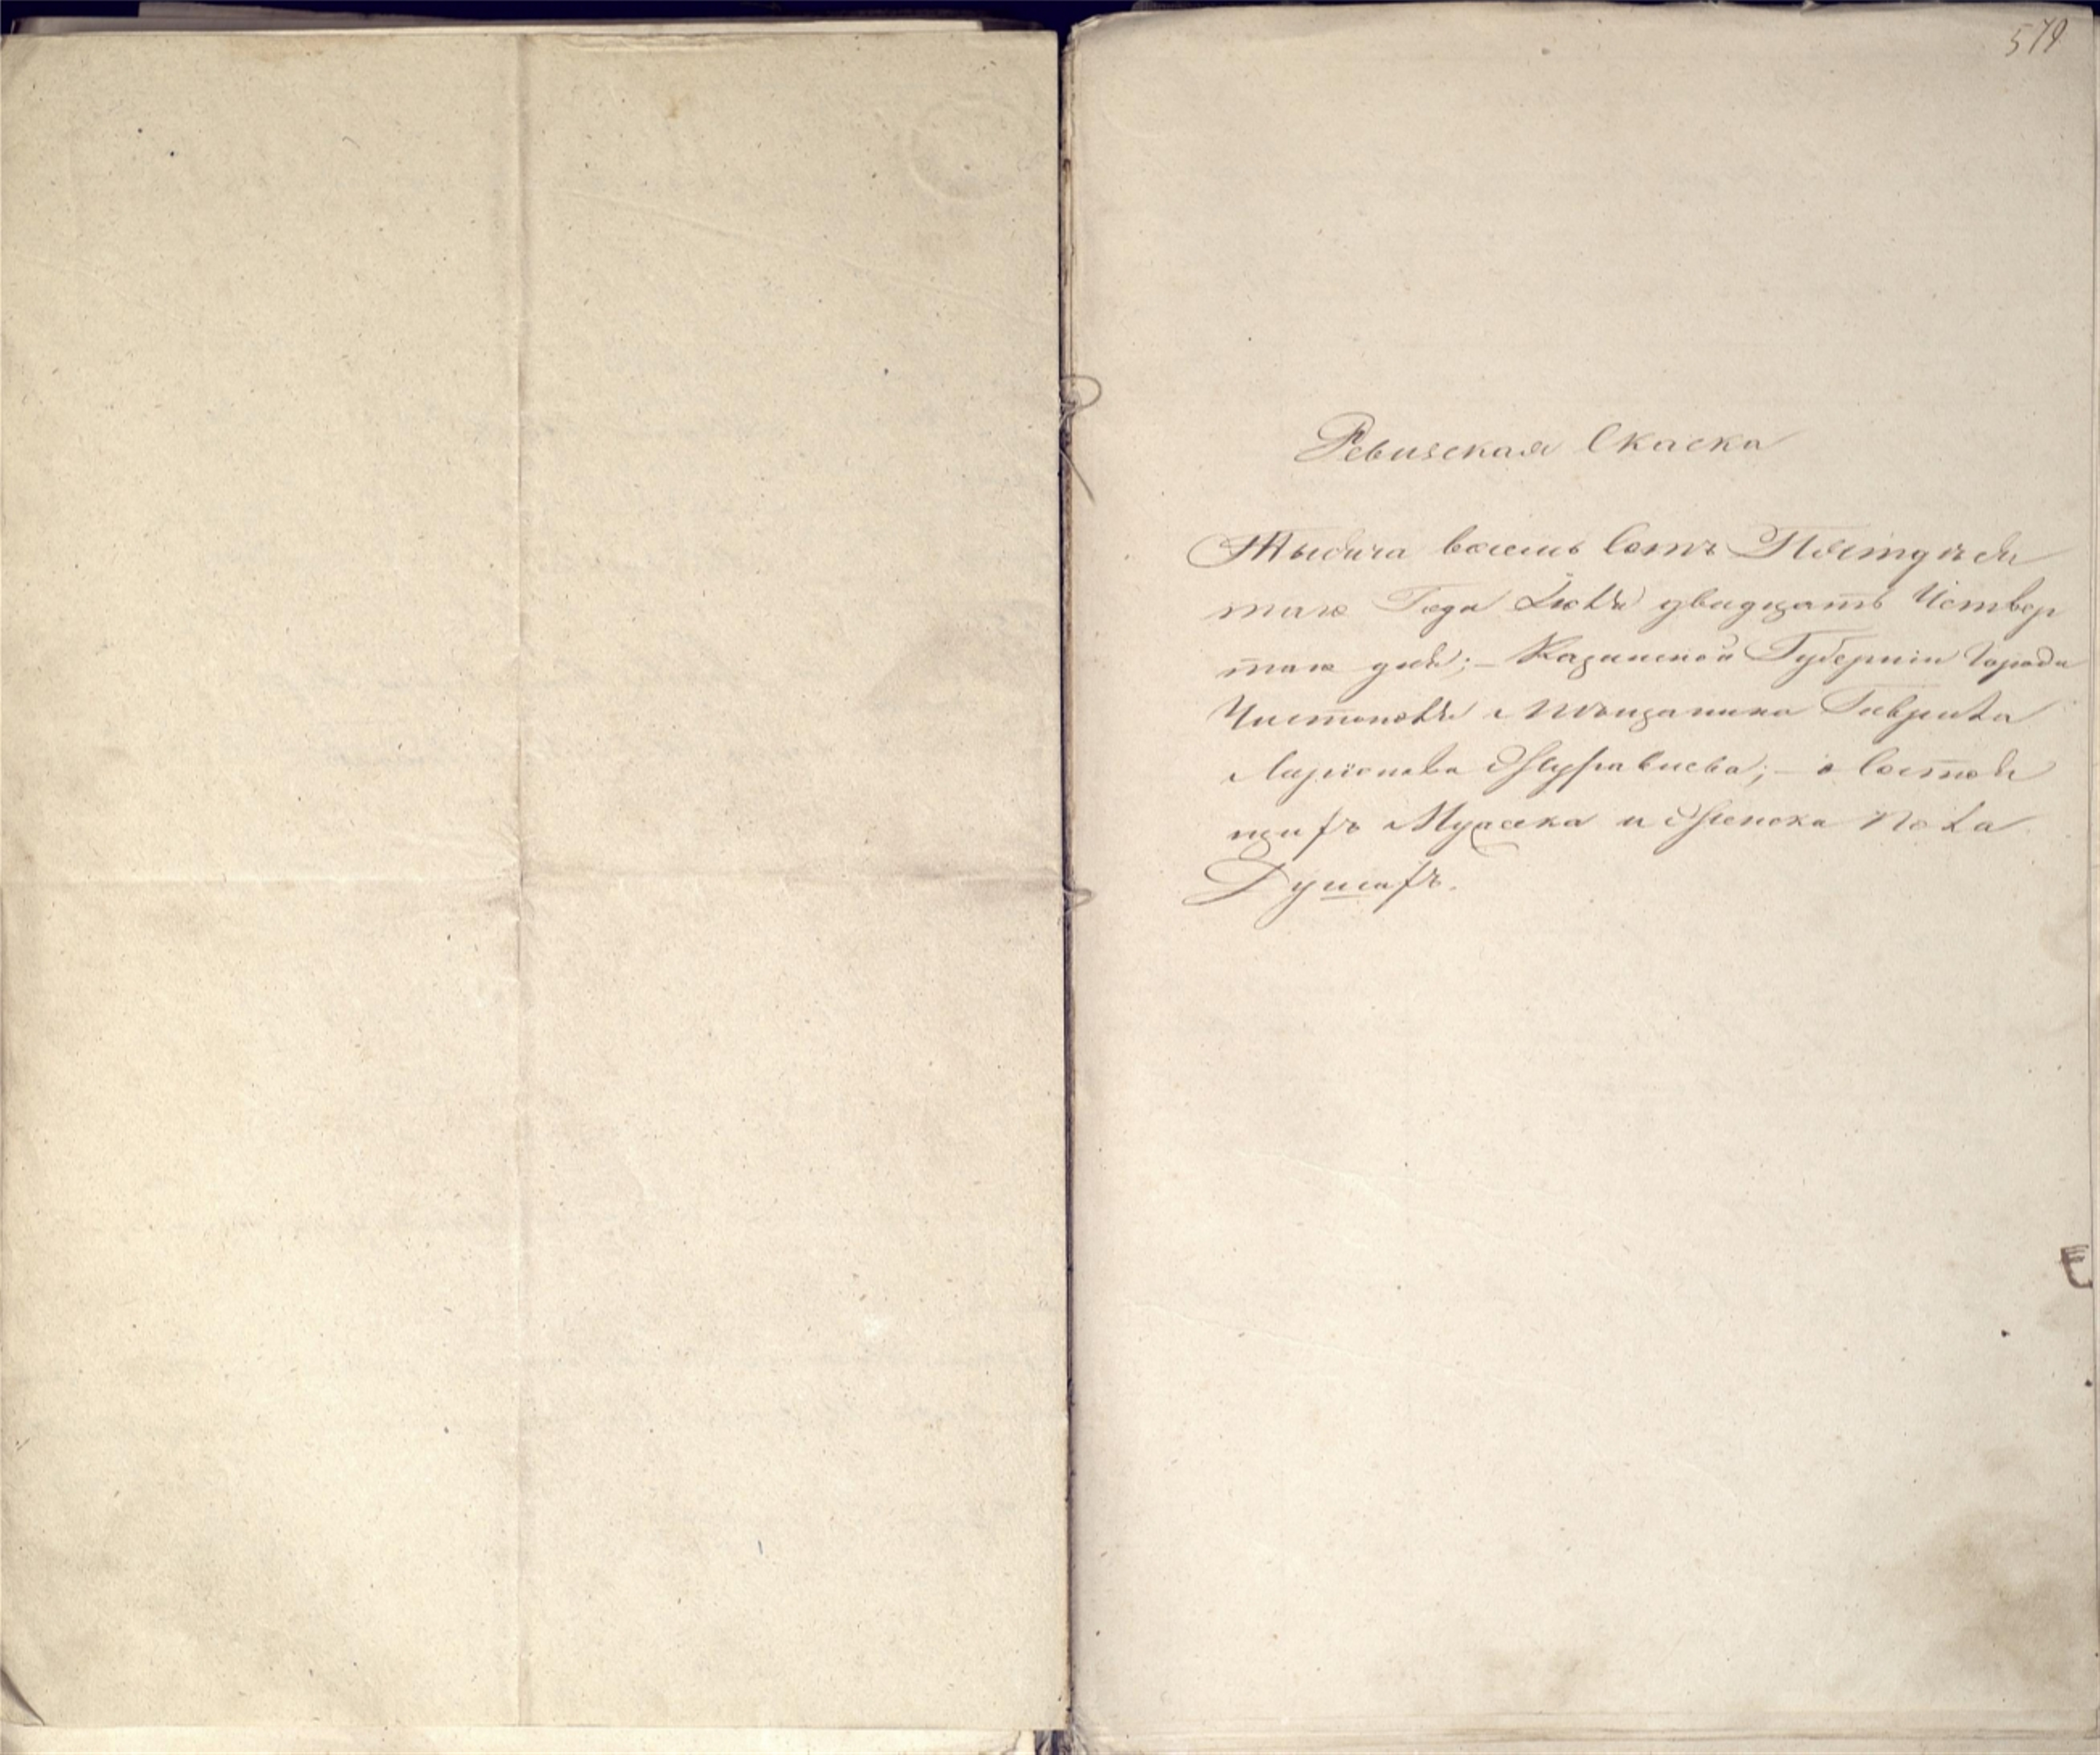 579
Ревизская Скаска
Тысяча восемь Сотъ Пятдеся
таго Года Іюля двадцать Четвер
таго дня; – Казанской Губерніи Города
Чистополя Мѣщанина Гаврила
Ларіонова Журавлева; – о Состоя
щихъ Мужска и Женска Пола
Душахъ.